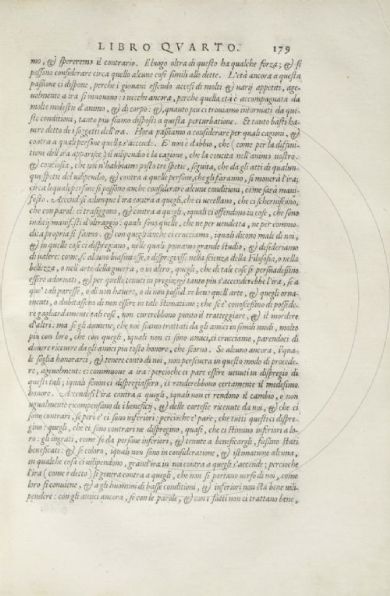 LIBRO QVARTO. 179
mo, & spereremo il contrario. E luogo oltra di questo ha qualche forza; & si
possono considerare circa quello alcune cose simili alle dette. L'età ancora a questa
passione ci dispone, perche i giovani essendo accesi di molti & varij appetiti, age-
uolmente a ira si muouono: i uecchi ancora, perche quella età è accompagnata da
molte molestie d'animo, & di corpo: & quanto piu ci trouiamo informati da que-
ste conditioni, tanto piu siamo disposti a questa perturbatione. Et tanto basti ha-
uere detto de i soggetti dell'ira. Hora passiamo a considerare per quali cagioni, &
contra a quali persone quella s'accende. E non è dubbio, che (come per la diffini-
tione dell'ira apparisce) il uilipendio è la cagione, che la concita nell'animo nostro.
& conciosia, che noi n'habbiamo posto tre spetie, seguita, che da gli atti di qualun-
que spetie del uilipendio, & contra a quelle persone, che gli faranno, si mouerà l'ira;
circa le quali persone si possono anche considerare alcune conditioni, come sarà mani-
festo. Accendesi adunque l'ira contra a quegli, che ci uccellano, che ci scherniscono,
che con parole ci trafiggono, & contra a quegli, i quali ci offendono in cose, che sono
indicij manifesti d'oltraggio: quali sono quelle, che ne per uendetta, ne per commo-
do proprio si fanno. & con quegli anche ci crucciamo, i quali dicono male di noi,
& in quelle cose ci dispregiano, nelle quali poniamo grande studio, & desideriamo
di ualere: come, se alcuno biasimasse, ò dispregiasse nella scienza della Filosofia, o nella
bellezza, o nell'arte della guerra, o in altro, quegli, che di tale cose si persuadessino
essere adornati, & per quelle tenuti in pregio: & tanto piu s'accenderebbe l'ira, se a
que' tali paresse, o di non hauere, o di non posseder bene quell'arte, & quegli orna-
menti, o dubitassino di non essere in tale stimatione; che se e' conoscessino di possede-
re gagliardamente tali cose, non curerebbono punto il tratteggiare, & il mordere
d'altri. ma se gli auuiene, che noi siamo trattati da gli amici in simili modi, molto
piu con loro, che con quegli, i quali non ci sono amici, ci crucciamo, parendoci di
douere riceuere da gli amici piu tosto honore, che scorno. Se alcuno ancora, il qua-
le soglia honorarci, & tenere conto di noi, non perseuera in questo modo di procede-
re, ageuolmente ci commuoue a ira: percioche ci pare essere uenuti in dispregio di
questi tali, i quali se non ci dispregiassero, ci renderebbono certamente il medesimo
honore. Accendesi l'ira contra a quegli, i quali non ci rendono il cambio, & non
ugualmente ricompensano i beneficij, & delle cortesie riceuute da noi, & che ci
sono contrari, se però e' ci sono inferiori: percioche e' pare, che tutti questi ci dispre-
gino: quegli, che ci sono contrari ne dispregino, quasi, che ci stimino inferiori a lo-
ro: gli ingrati, come se da persone inferiori, & tenute a beneficargli, fussino stati
beneficati: & se coloro, i quali non sono in consideratione, & istimatione alcuna,
in qualche cosa ci uilipendono, grand'ira in noi contra a quegli s'accende: percioche
l'ira (come è detto) si genera contra a quegli, che non si portano uerso di noi, come
loro si conuiene, & a gli huomini di basse conditioni, & inferiori non istà bene uili-
pendere: con gli amici ancora, se con le parole, & con i fatti non ci trattano bene,